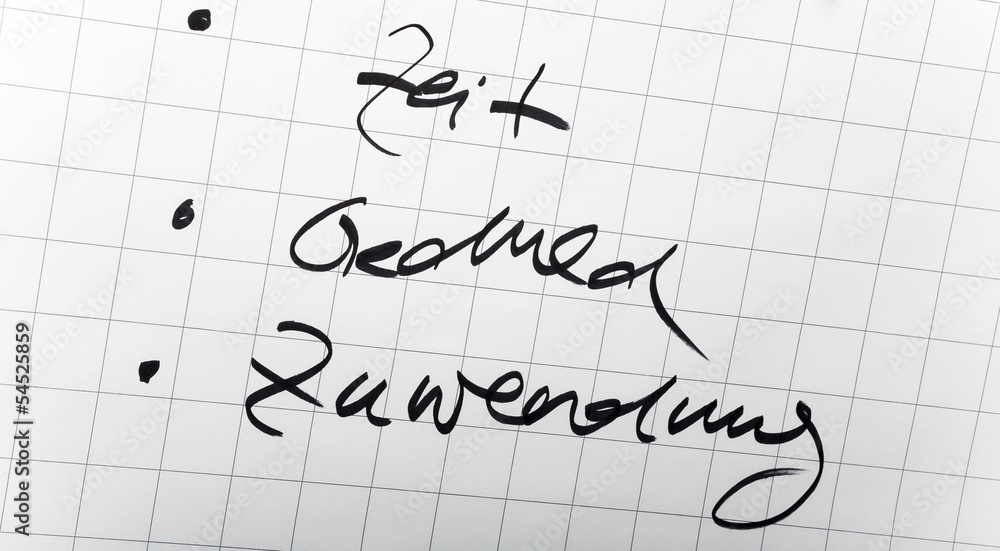 • Zeit
• Geduld
• Zuwendung
Adobe Stock | #54525859